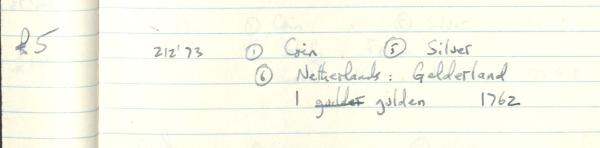 £5 212'73 ① Coin ⑤ Silver
⑥ Netherlands: Gelderland
1 gulder gulden 1762